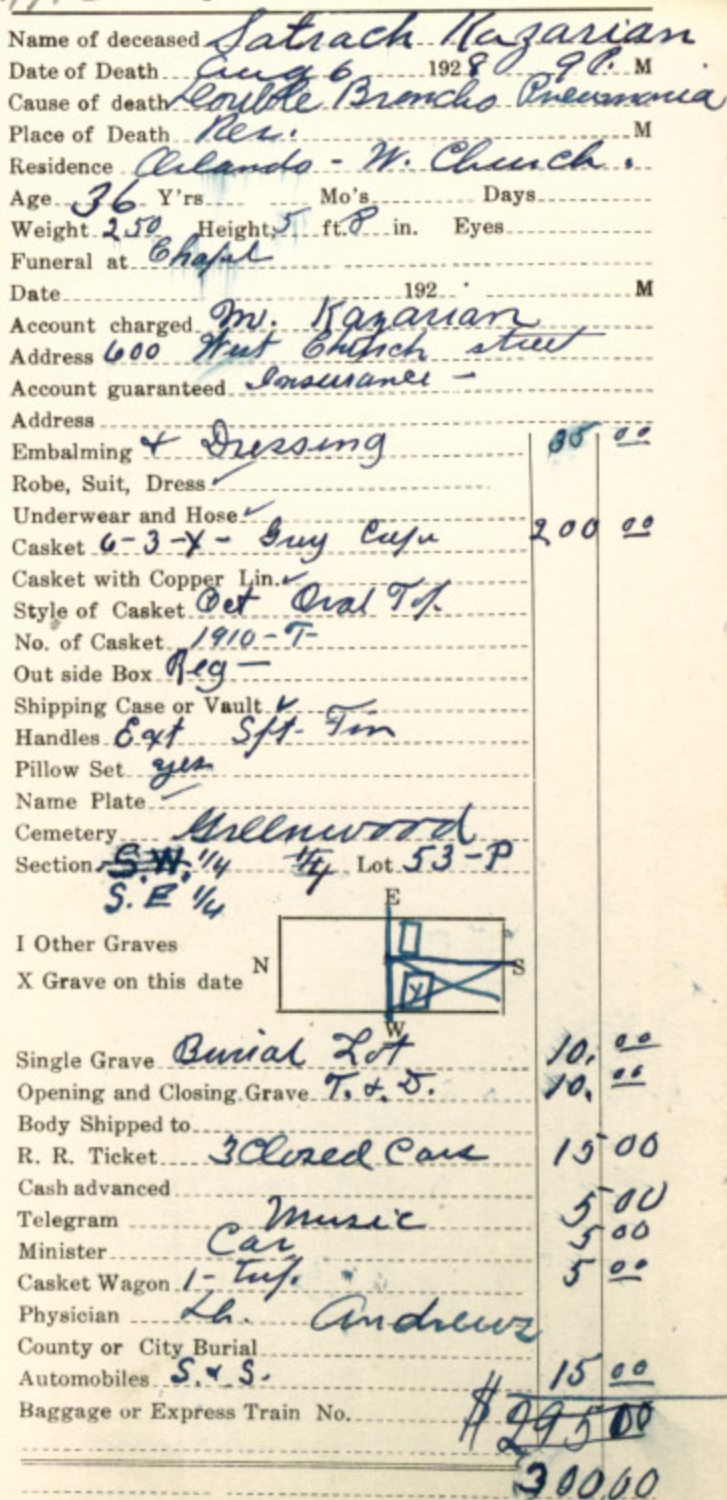 Name of deceased Satrach Kazarian
Date of Death Aug 6 1928 9 P. M
Cause of death Double Broncho Pneumonia
Place of Death Res. M
Residence Orlando - W. Church.
Age 36 Y'rs Mo's Days
Weight 250 Height 5 ft. 8 in. Eyes
Funeral at Chapel
Date 192 M
Account charged M. Kazarian
Address 600 West Church street
Account guaranteed Insurance -
Address
Embalming & Dressing 35 00
Robe, Suit, Dress ✓
Underwear and Hose ✓
Casket 6-3-X- Grey 200 00
Casket with Copper Lin. ✓
Style of Casket Oct Oval Top
No. of Casket 1910-T-
Out side Box Reg -
Shipping Case or Vault ✓
Handles Ext Tin
Pillow Set yes
Name Plate
Cemetery Greenwood
Section S.W. 1/4 Lot 53-P
S.E 1/4
E
I Other Graves
N S
X Grave on this date
X
W
Single Grave Burial Lot 10. 00
Opening and Closing Grave T. & D. 10. 00
Body Shipped to
R. R. Ticket 3 Closed Cars 15 00
Cash advanced
Telegram Music 5 00
Minister Car 5 00
Casket Wagon 1- 5 00
Physician Andrews
County or City Burial
Automobiles S. & S. 15 00
Baggage or Express Train No. $295 00
300 00